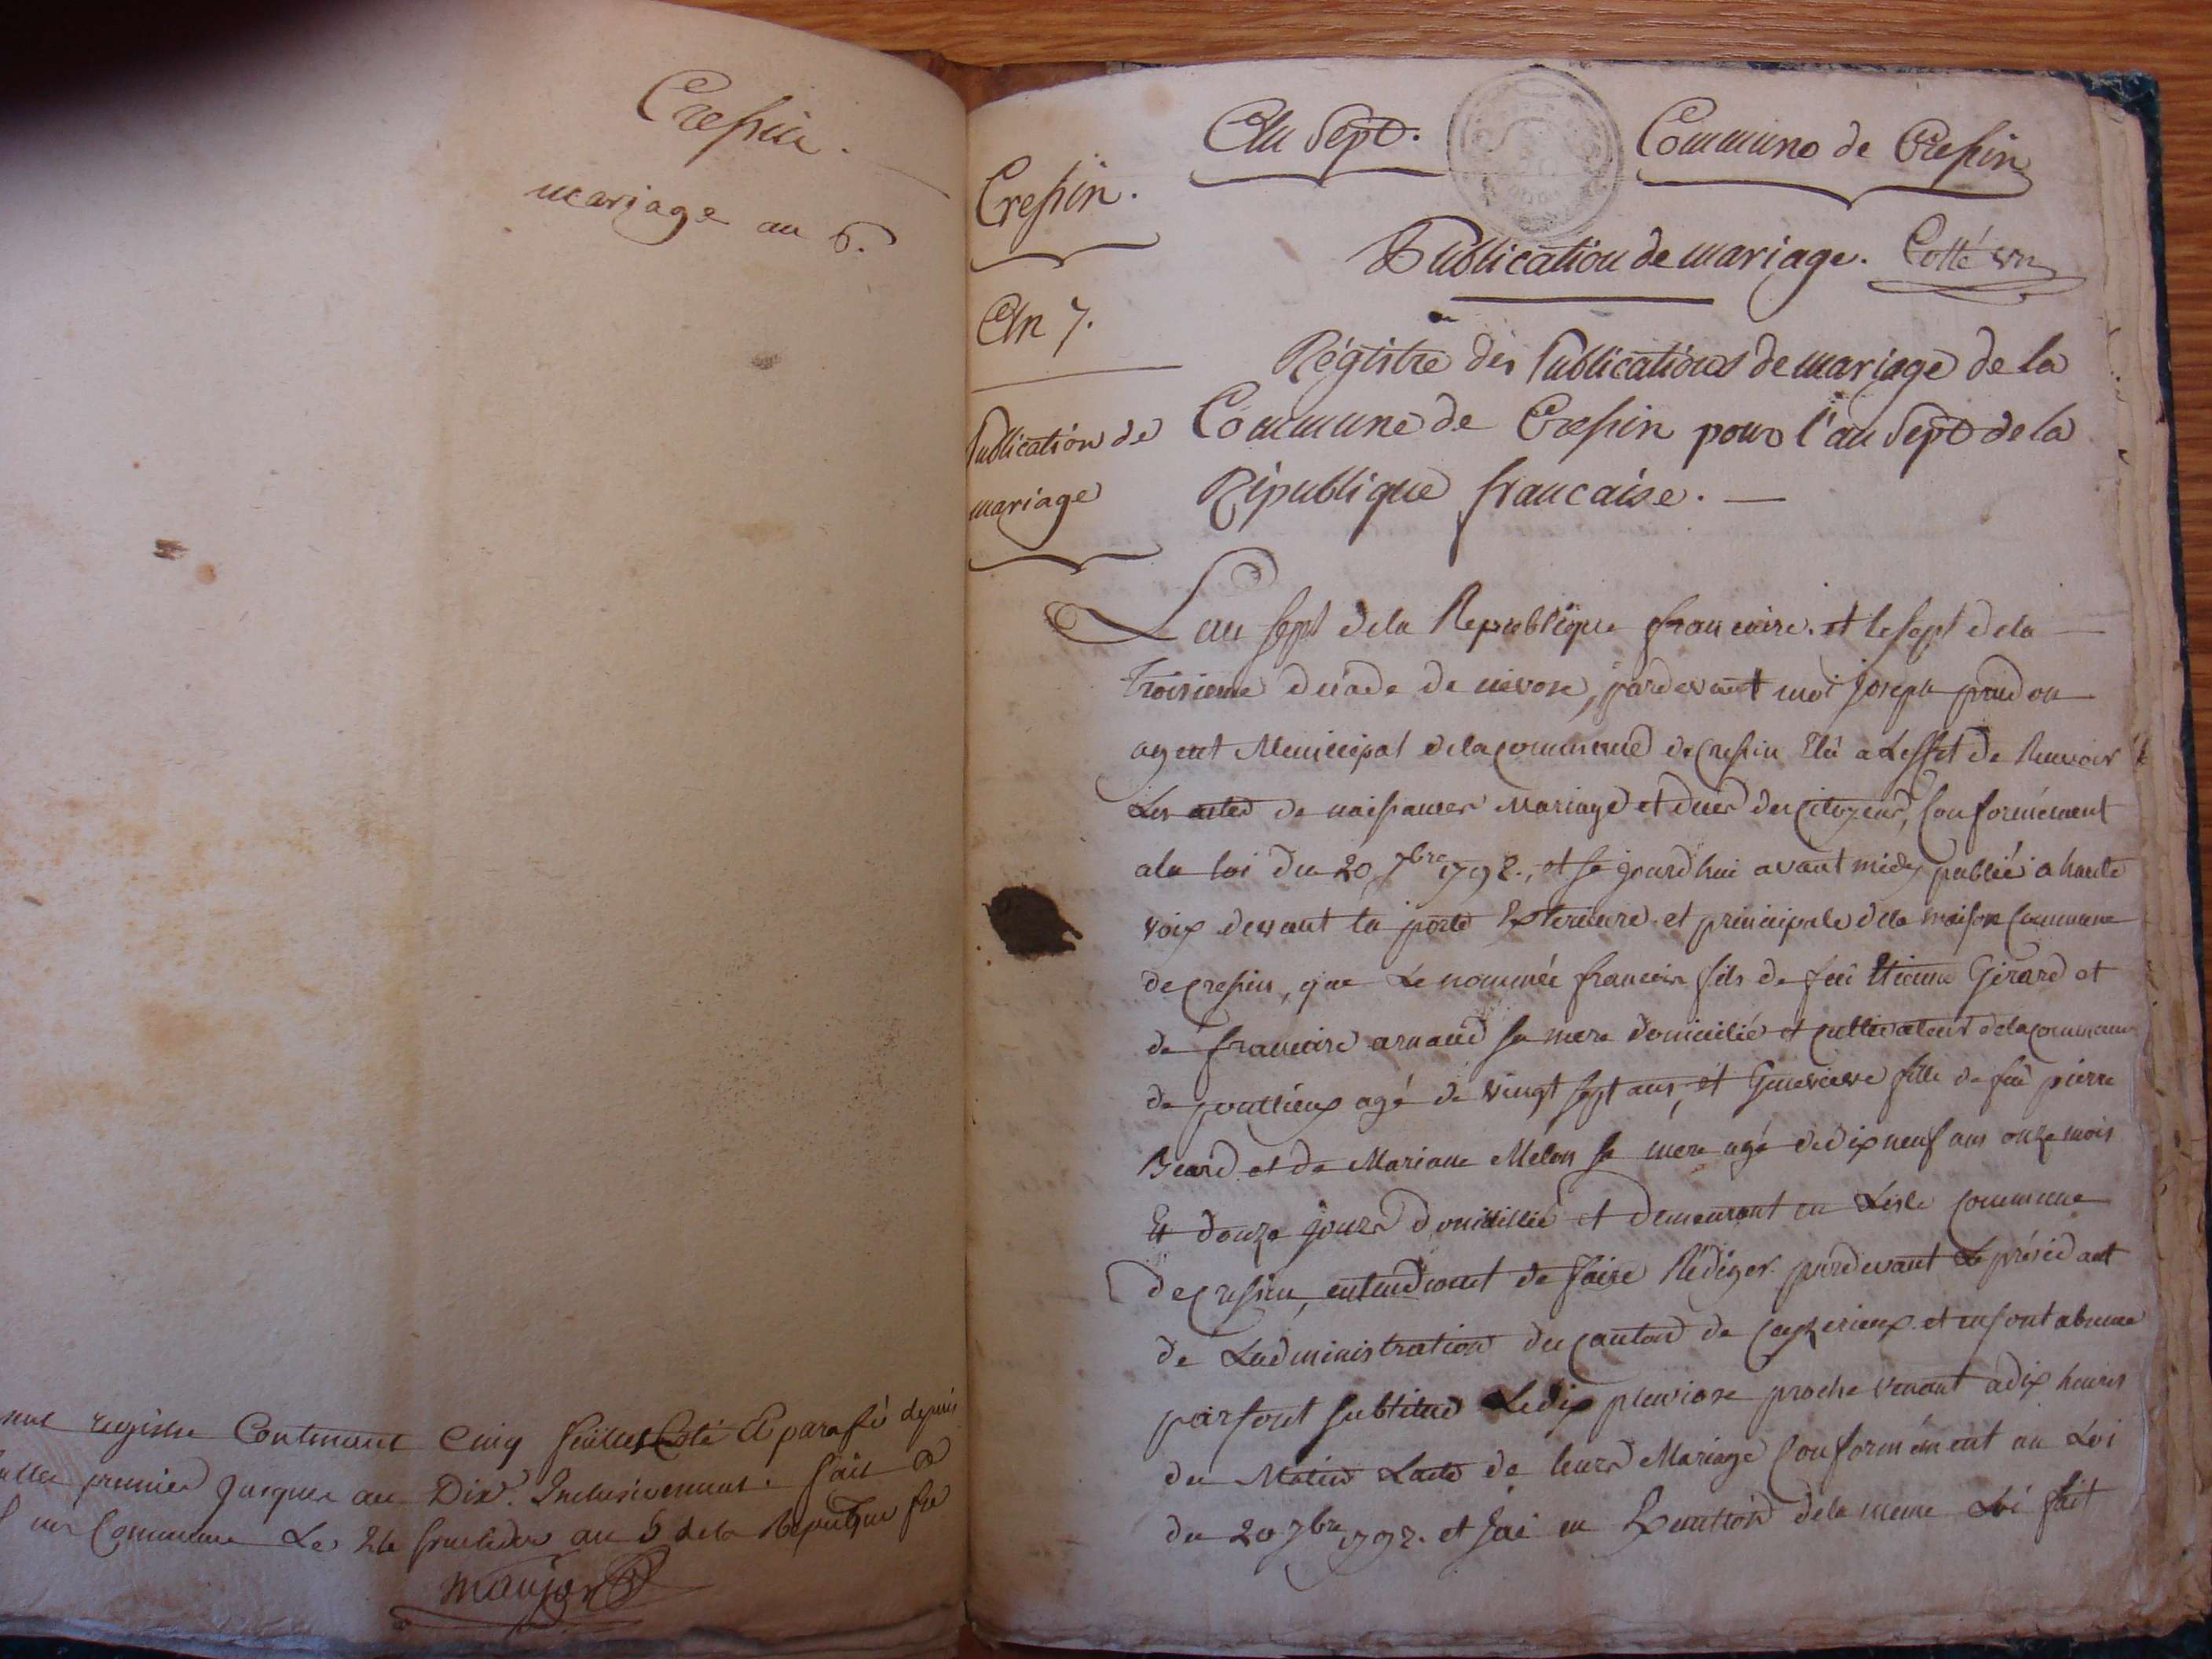 Crepin.
mariage an 6.
registre Contenant Cinq feuilles Coté Et parafé depuis
premier jusques au Dix. Inclusivement. fait a
Commune Le 24 fructidor an 5 de la Republique
Crepin.
An 7.
Publication de
mariage
An Sept.
Commune de Crepin
Publication de mariage. Cotté un
Régistre des Publications de mariage de la
Commune de Crepin pour l'an Sept de la
République francaise.
Lan sept dela Republique francaise. et le sept dela
troisieme décade de nivose, pardevant moi joseph prudon
agent Municipal dela commune de crepin Elu a Leffet de
Les actes de naissances Mariage et deces des citoyens, Conformément
ala loi du 20 7bre 1792., et se jourdhui avant midy publié a haute
voix devant la porte Exterieure et principale dela maison Commune
de crepin, que Le nommée francois fils de feu Etienne Girard et
de francoise arnaud sa mere domicilié et cultivateur dela commune
de agé de vingt sept ans, et Genevieve fille de feu pierre
et de Mariane Mélon sa mere agé de dix neuf ans onze mois
Et douze jours domicillié et demeurant en Lisle commune
de crepin, entendront de faire Rédiger pardevant Le présidant
de Ladministration du canton de et en son absence
par son subtitud Le dix pluviose proche venant a dix heures
du Matin Lacte de leurs Mariage Conformément au Loi
du 20 7bre 1792. et Jai en dela meme Loi fait